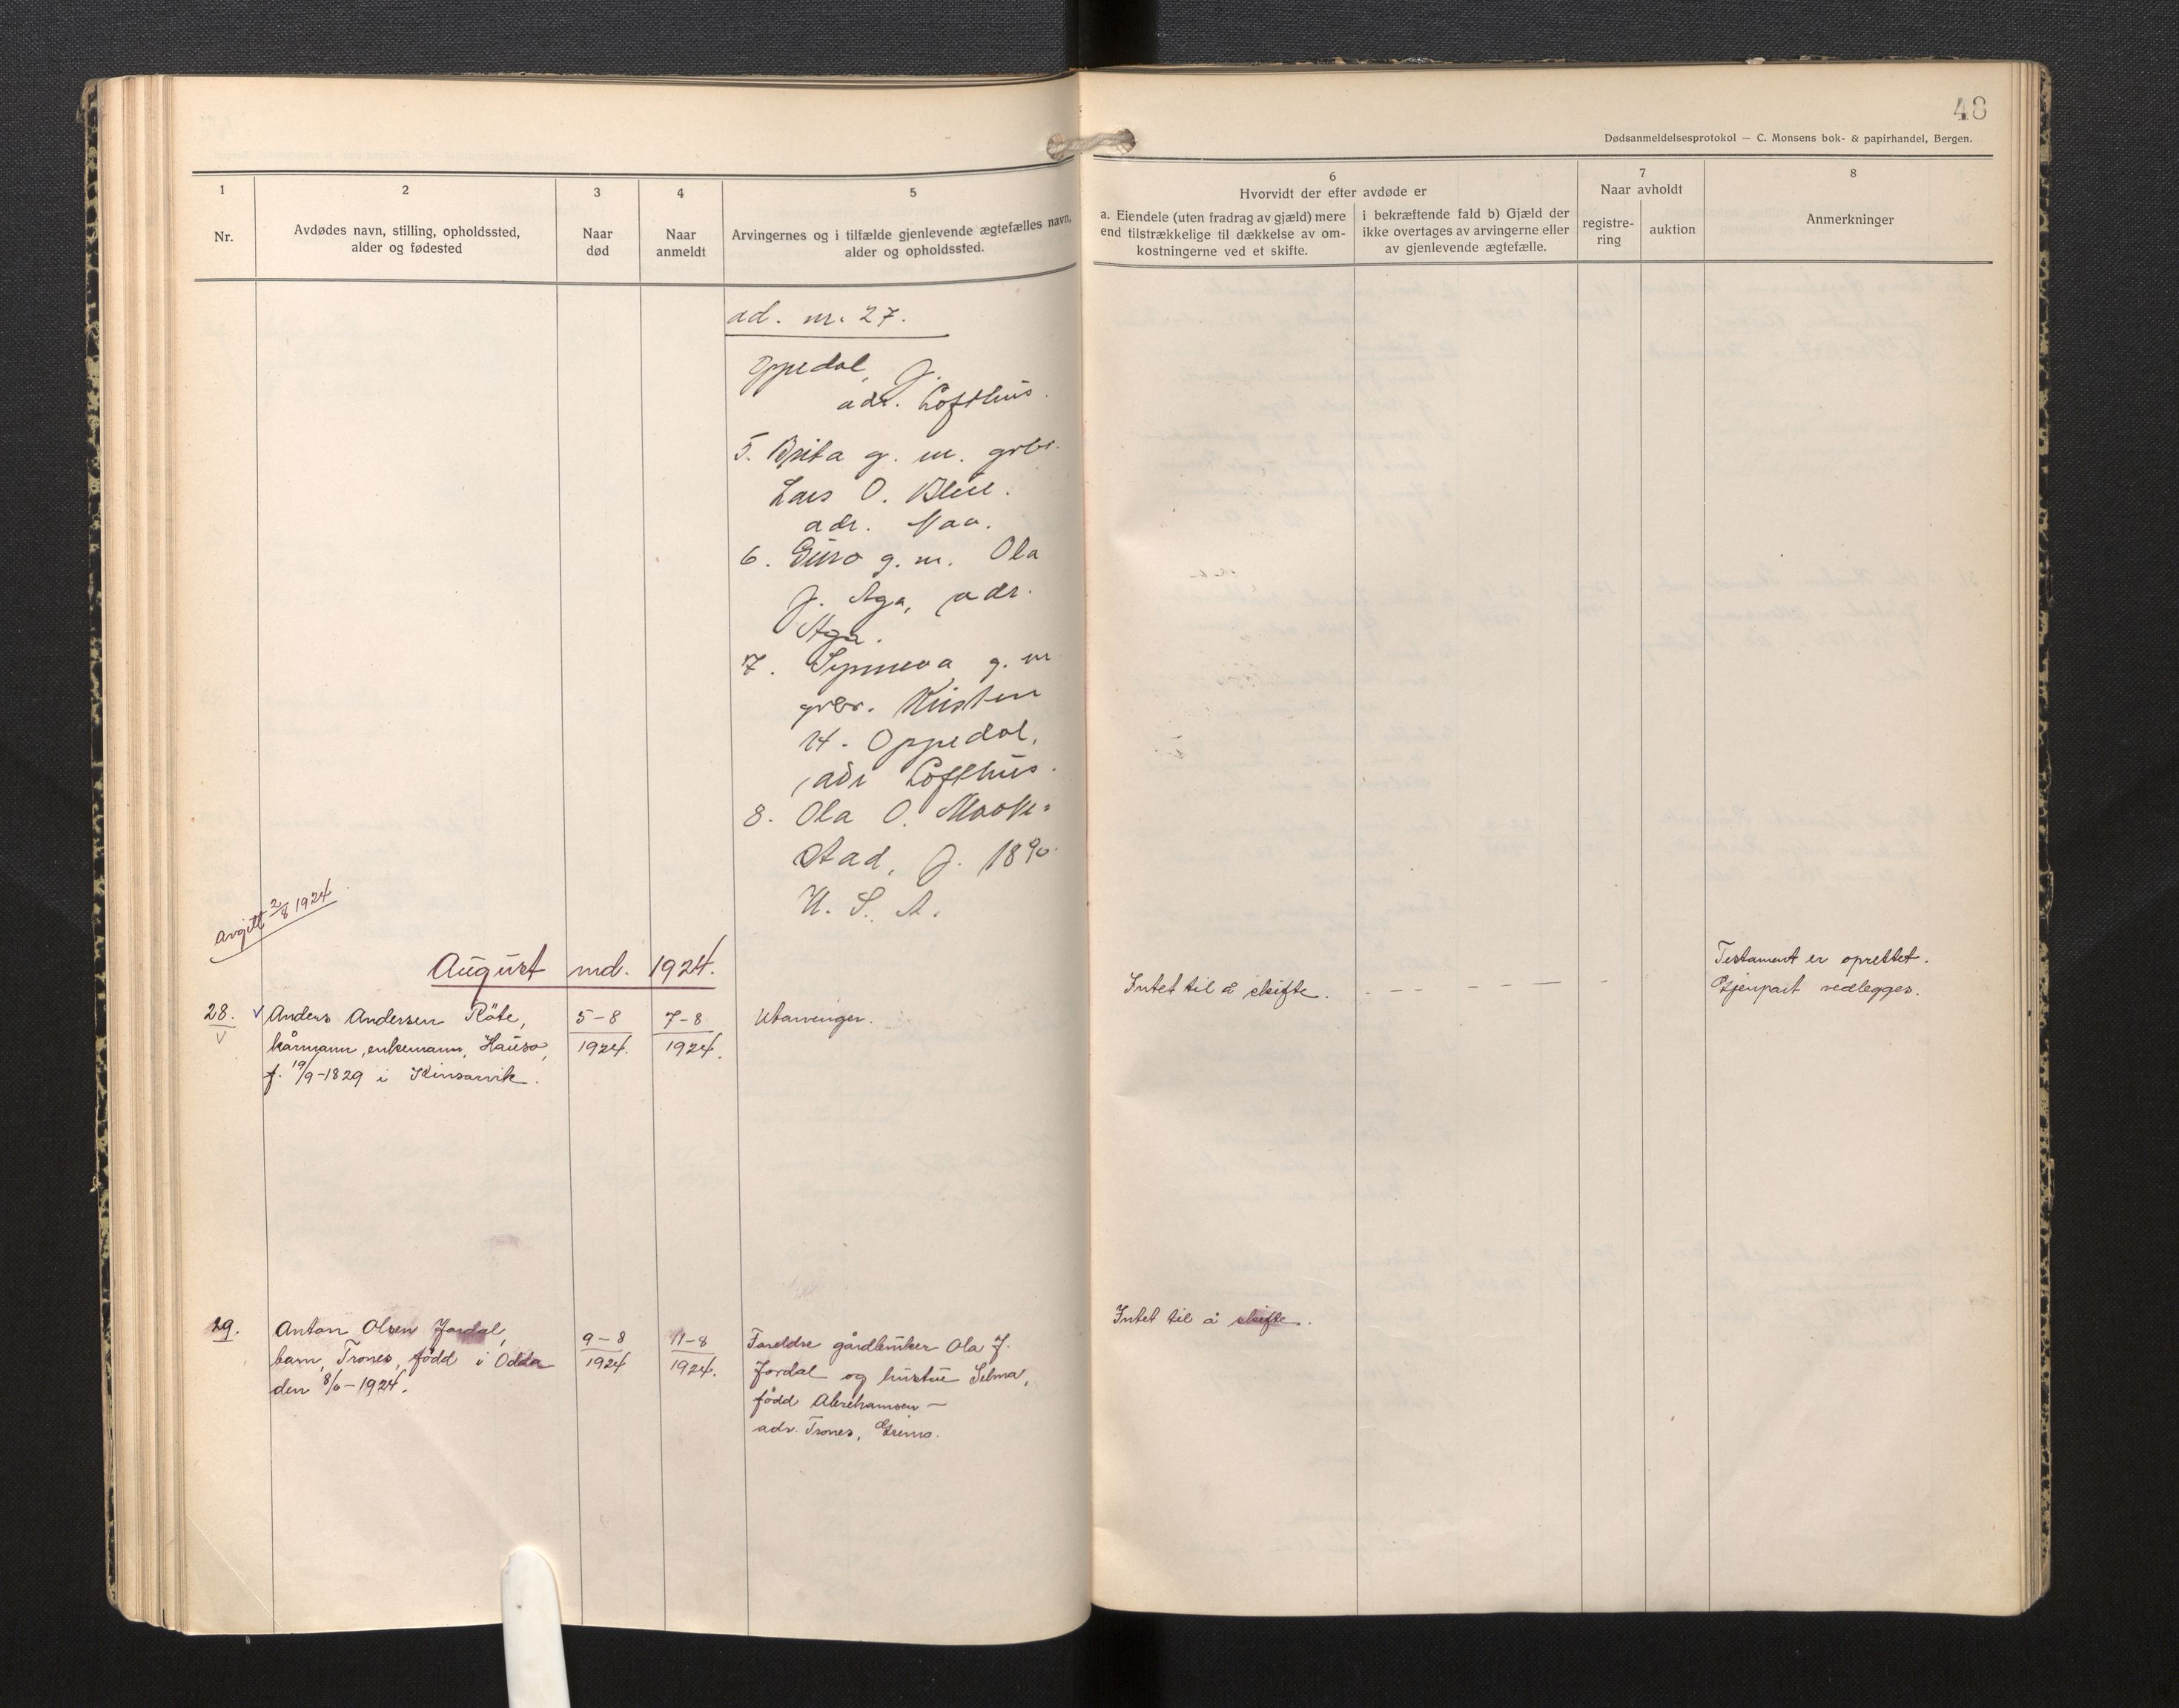 48
Dødsanmeldelsesprotokol — C. Monsens bok- & papirhandel, Bergen.
1
Nr.
2
Avdødes navn, stilling, opholdssted,
alder og fødested
3
Naar
død
4
Naar
anmeldt
5
Arvingernes og i tilfælde gjenlevende ægtefælles navn,
alder og opholdssted.
6
Hvorvidt der efter avdøde er
a. Eiendele (uten fradrag av gjæld) mere
end tilstrækkelige til dækkelse av om-
kostningerne ved et skifte.
i bekræftende fald b) Gjæld der
ikke overtages av arvingerne eller
av gjenlevende ægtefælle.
7
Naar avholdt
registre-
ring
auktion
8
Anmerkninger
ad. nr. 27.
Oppedal,
adr. Lofthus.
5. Brita g. m. grbr.
Lars O. Bleie.
adr. Naa.
6. Guro g. m. Ola
J. Aga, adr.
Aga.
7. Synneva g. m
grbr. Kristen
H. Oppedal,
adr Lofthus.
8. Ola O. Maake-
stad, f. 1890.
U. S. A.
Avgitt 2/8 1924
August md. 1924.
28.
Anders Andersen Röte,
kårmann, enkemann, Hauso,
f. 19/9-1829 i Kinsarvik.
5-8
1924.
7-8
1924.
Utarvinger.
Intet til å skifte. - - - - - - -
Testament er oprettet.
Gjenpart vedlegges.
29.
Anton Olsen Jordal,
barn, Trones, född i Odda
den 8/6-1924.
9-8
1924
11-8
1924.
Foreldre gårdbruker Ola J.
Jordal og hustru Selma,
född Abrahamsen —
adr. Trones, Grimo.
Intet til å skifte.